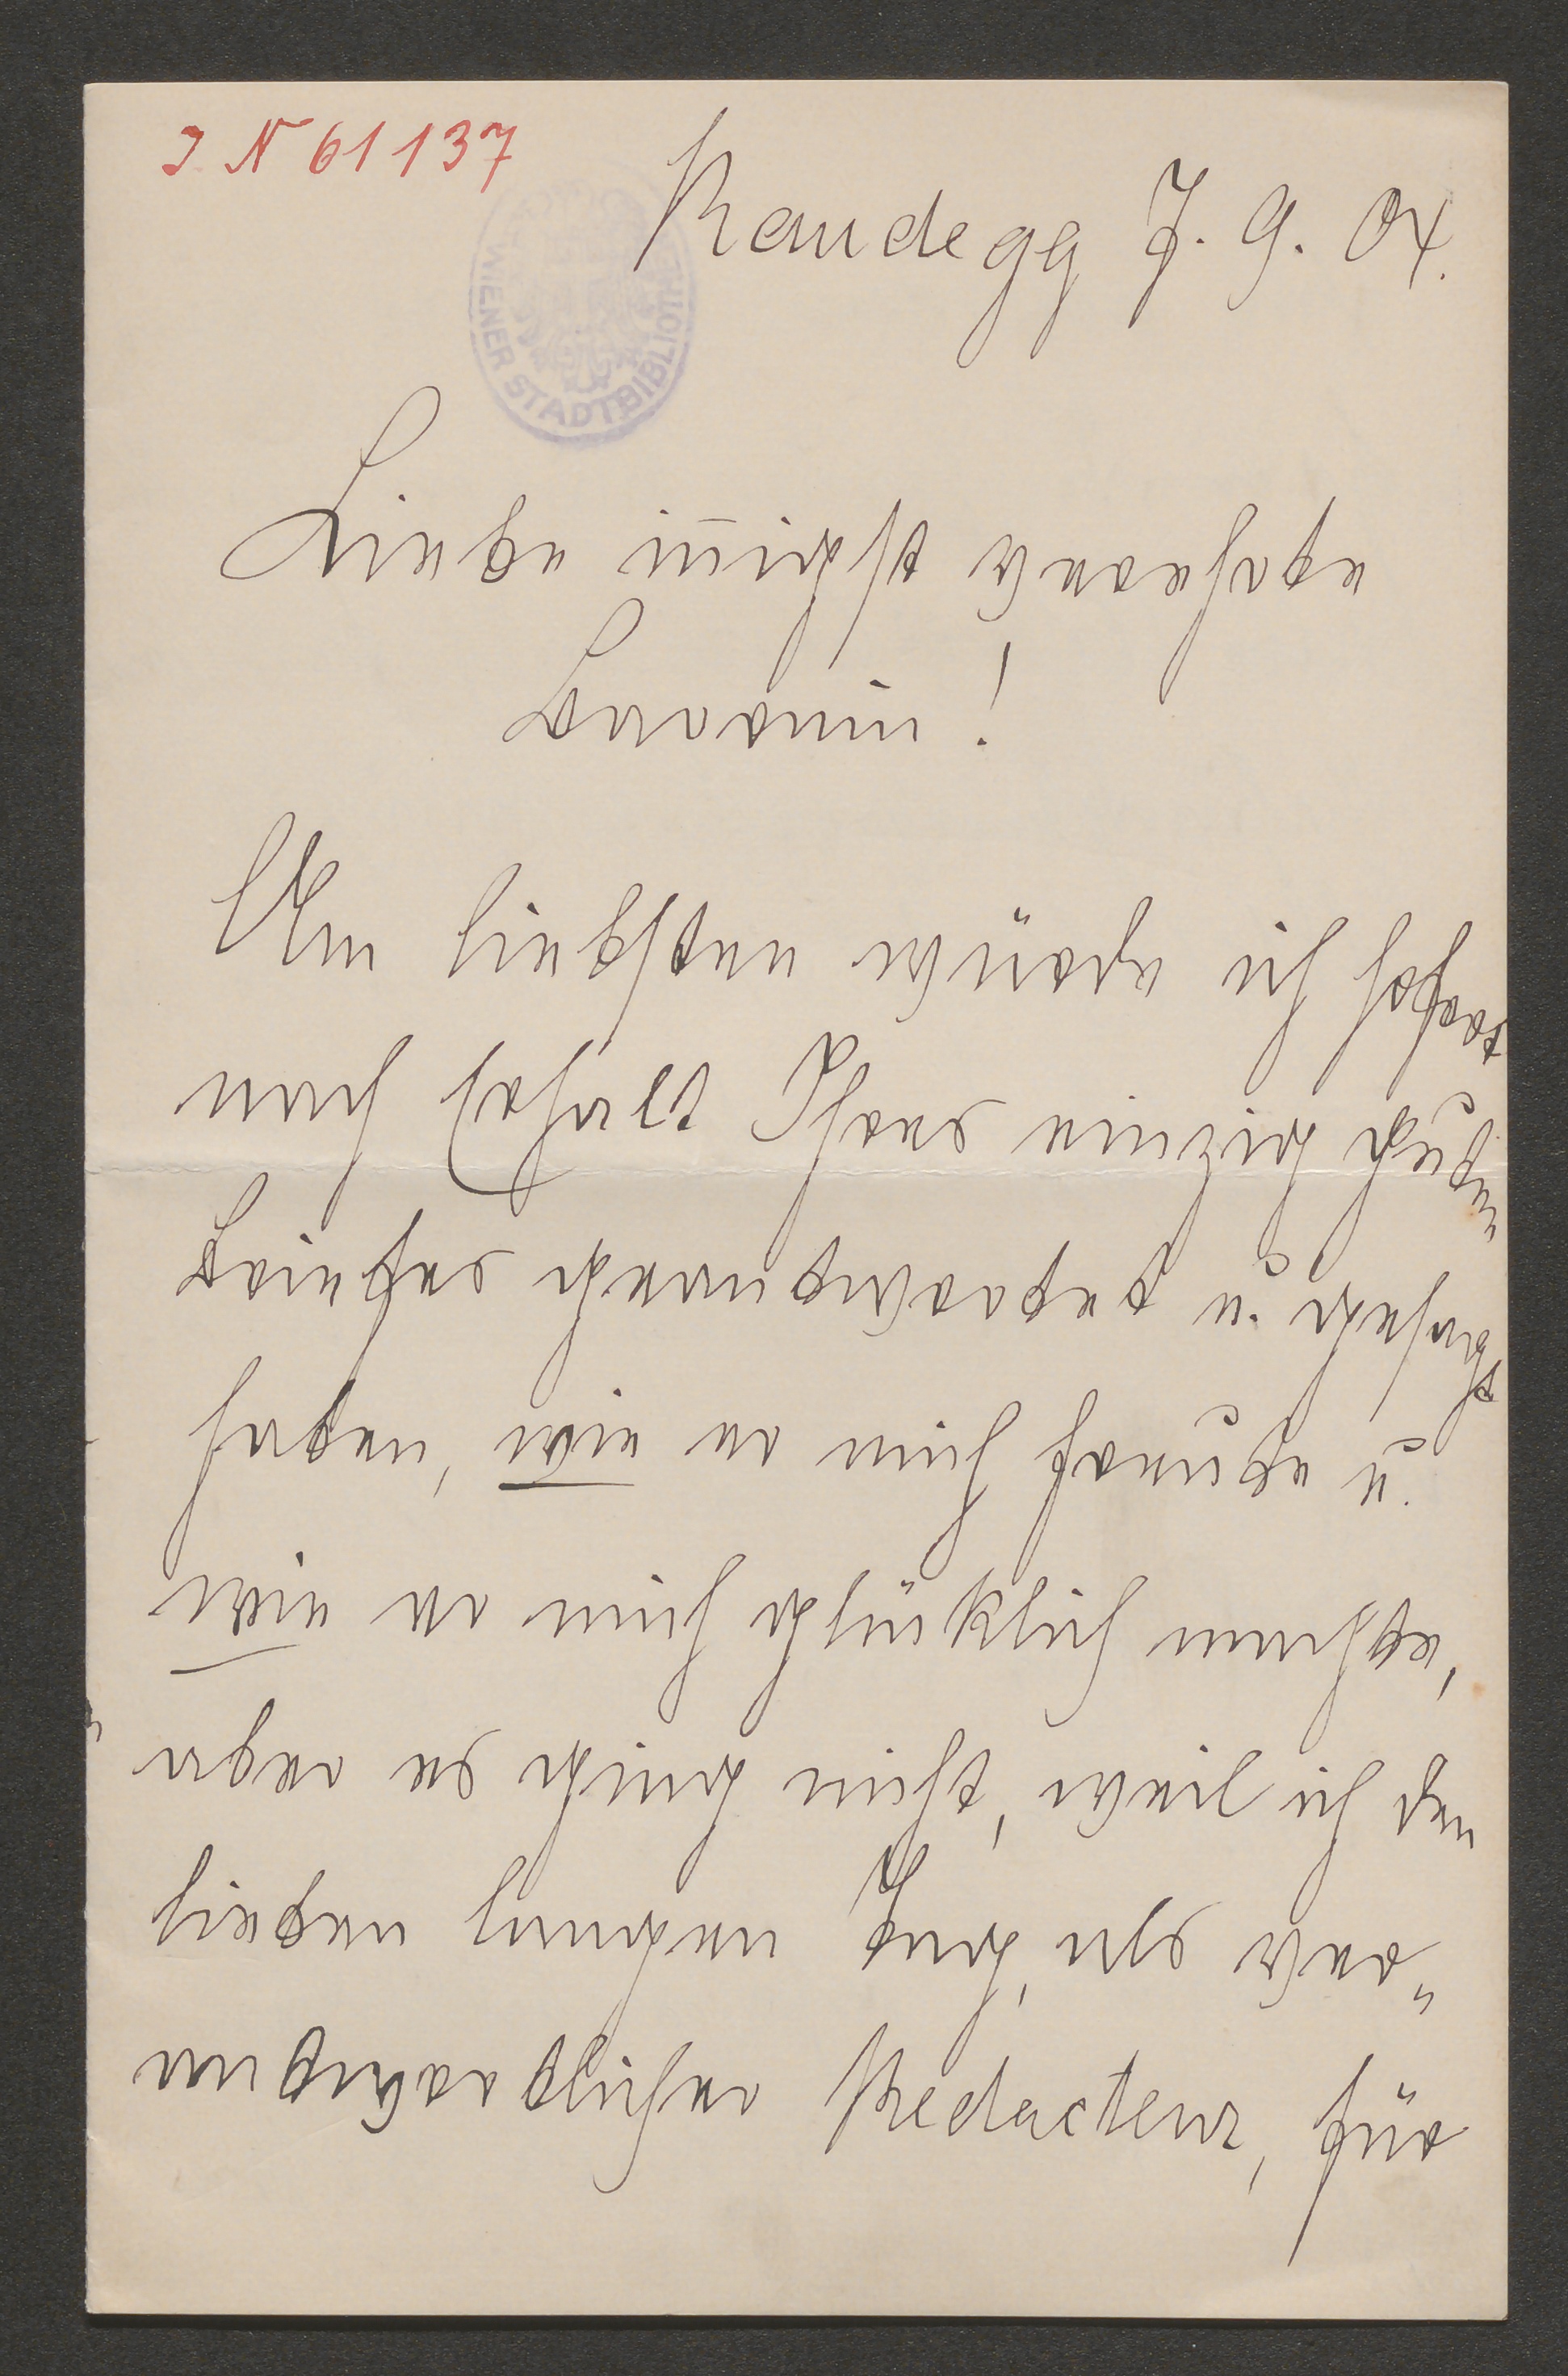 I N 61137
WIENER STADTBIBLIOTHEK
Randegg 7. 9. 04.
Liebe innigst verehrte
Baronin!
Am liebsten würde ich sofort
nach Erhalt Ihres einzig gütigen
Briefes geantwortet u. gesagt
haben, wie er mich freute u.
wie er mich glücklich machte,
aber es ging nicht, weil ich den
lieben langen Tag, als ver-
antwortlicher Redacteur, für